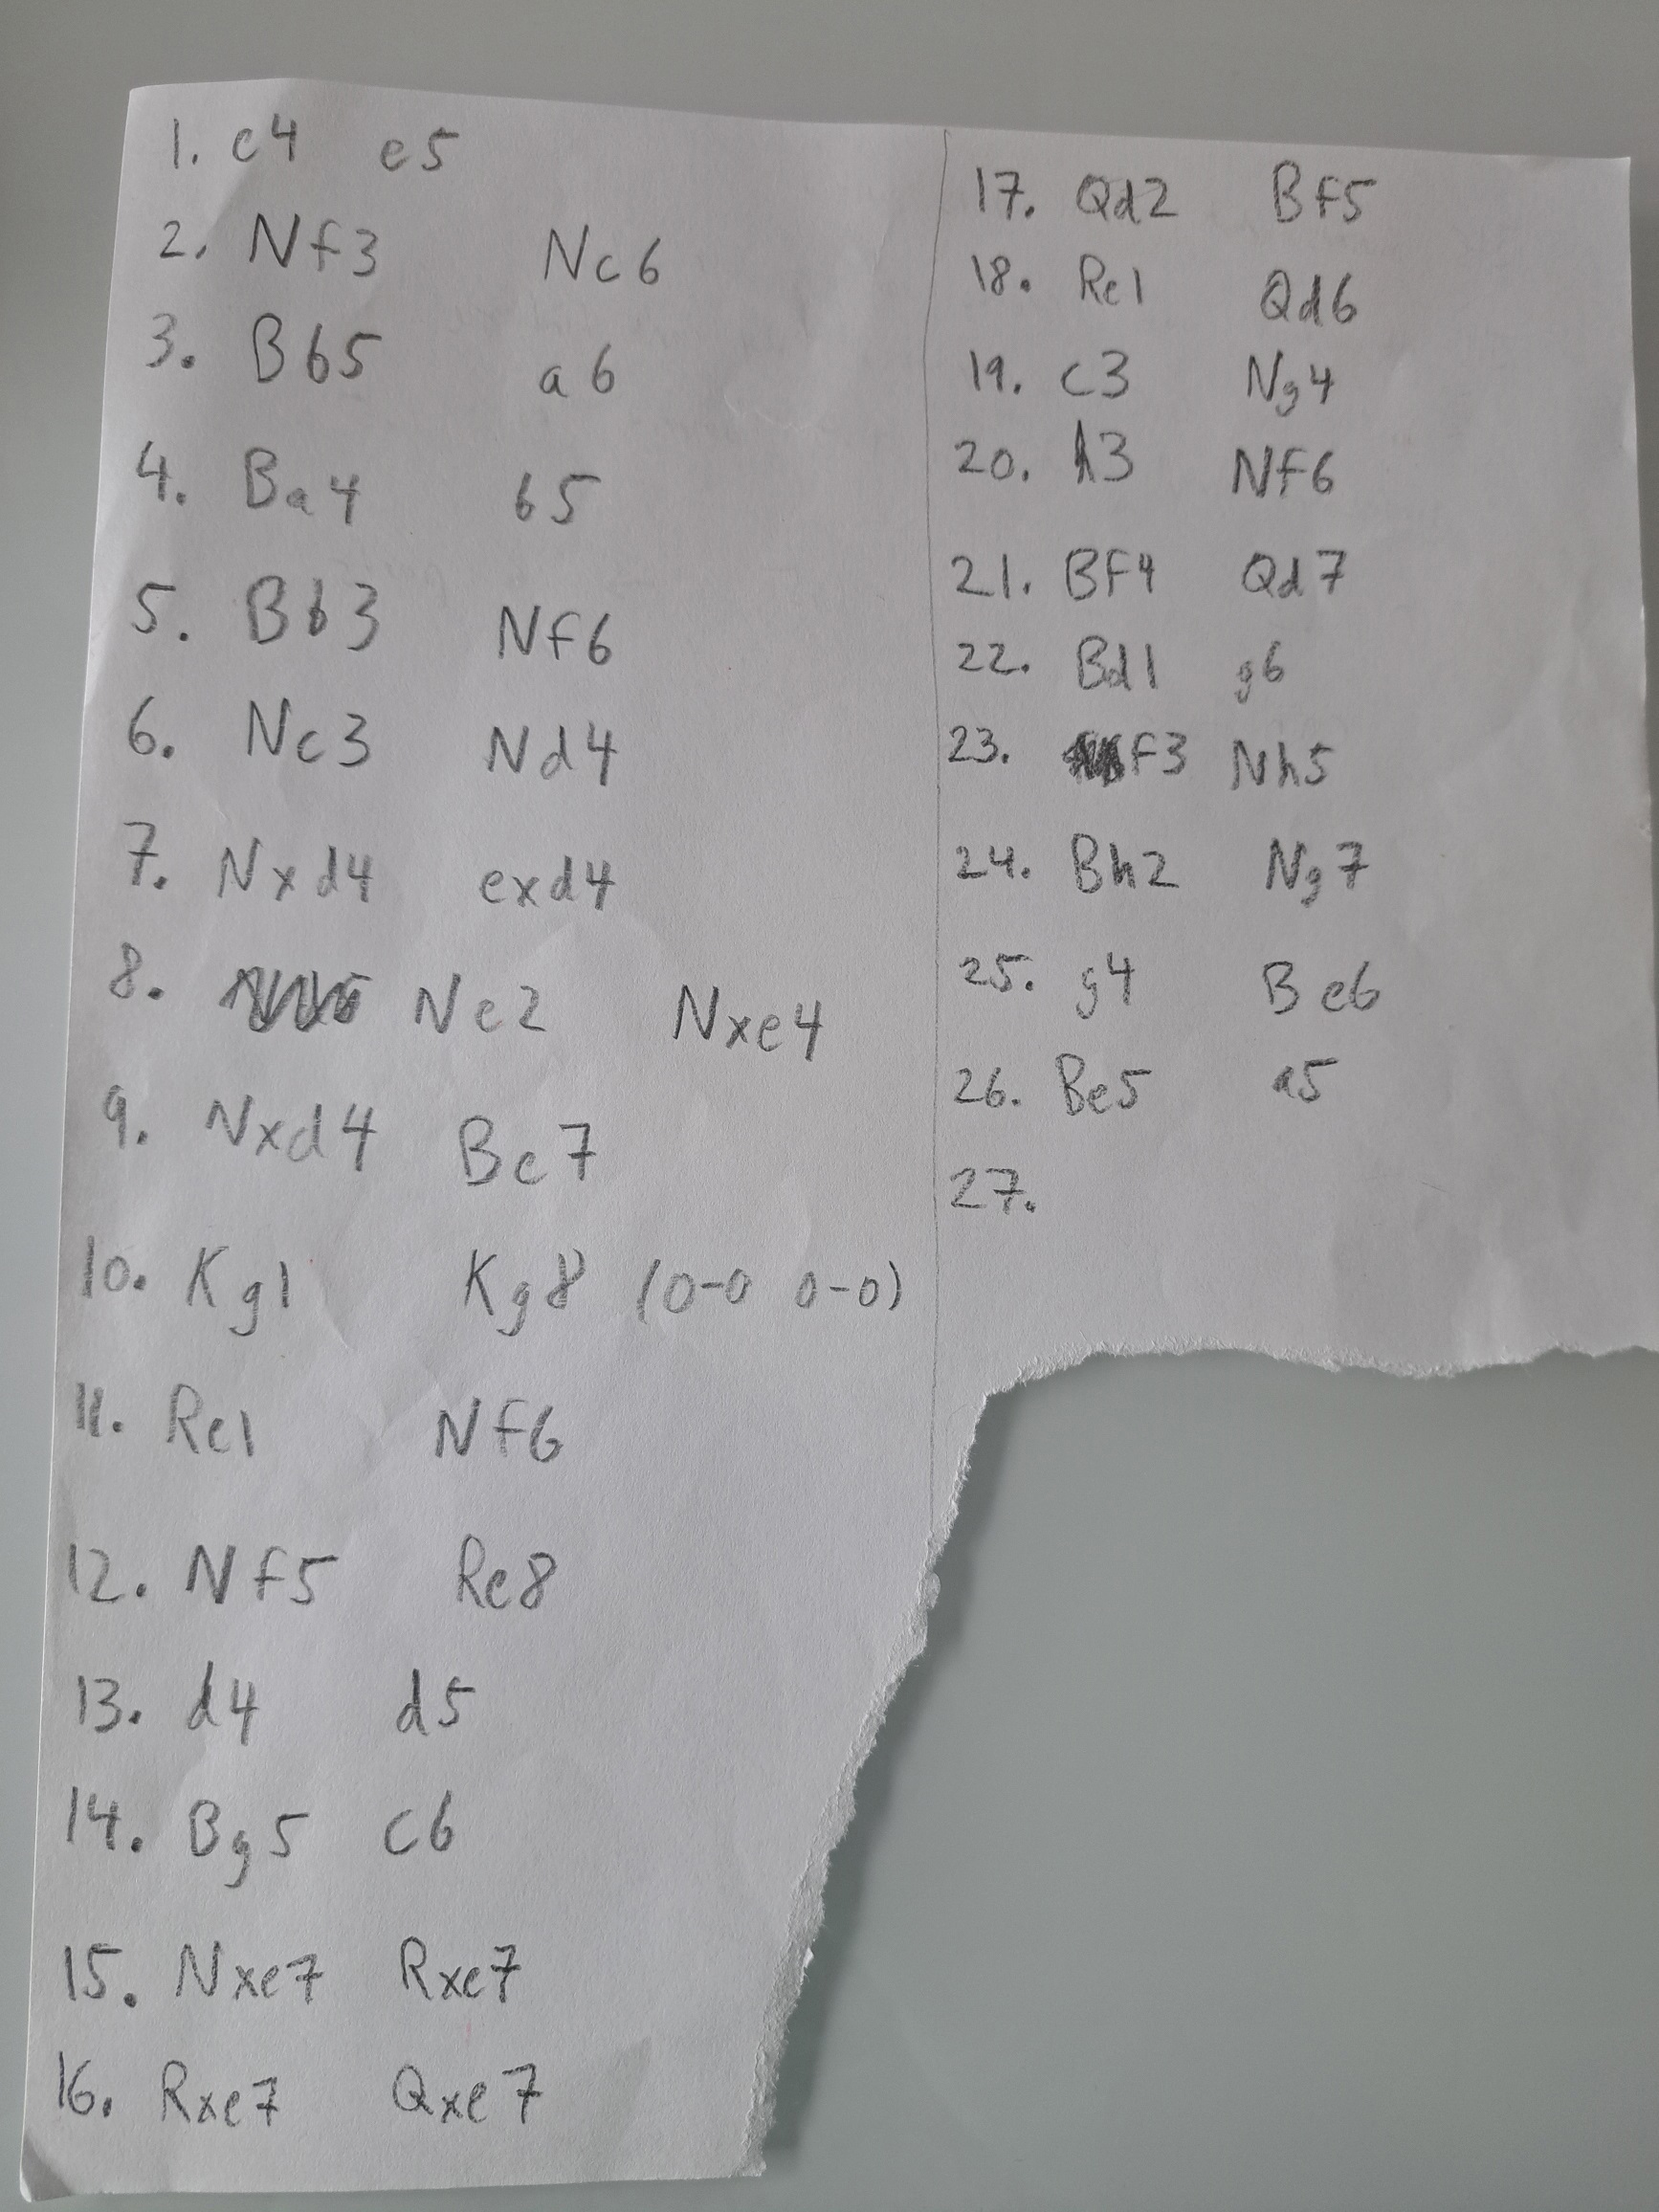 1. e4 e5
2. Nf3 Nc6
3. Bb5 a6
4. Ba4 b5
5. Bb3 Nf6
6. Nc3 Nd4
7. Nxd4 exd4
8. Ne2 Nxe4
9. Nxd4 Be7
10. Kg1 Kg8 (0-0 0-0)
11. Re1 Nf6
12. Nf5 Re8
13. d4 d5
14. Bg5 c6
15. Nxe7 Rxe7
16. Rxe7 Qxe7
17. Qd2 Bf5
18. Re1 Qd6
19. c3 Ng4
20. h3 Nf6
21. Bf4 Qd7
22. Bd1 g6
23. F3 Nh5
24. Bh2 Ng7
25. g4 Be6
26. Be5 a5
27.